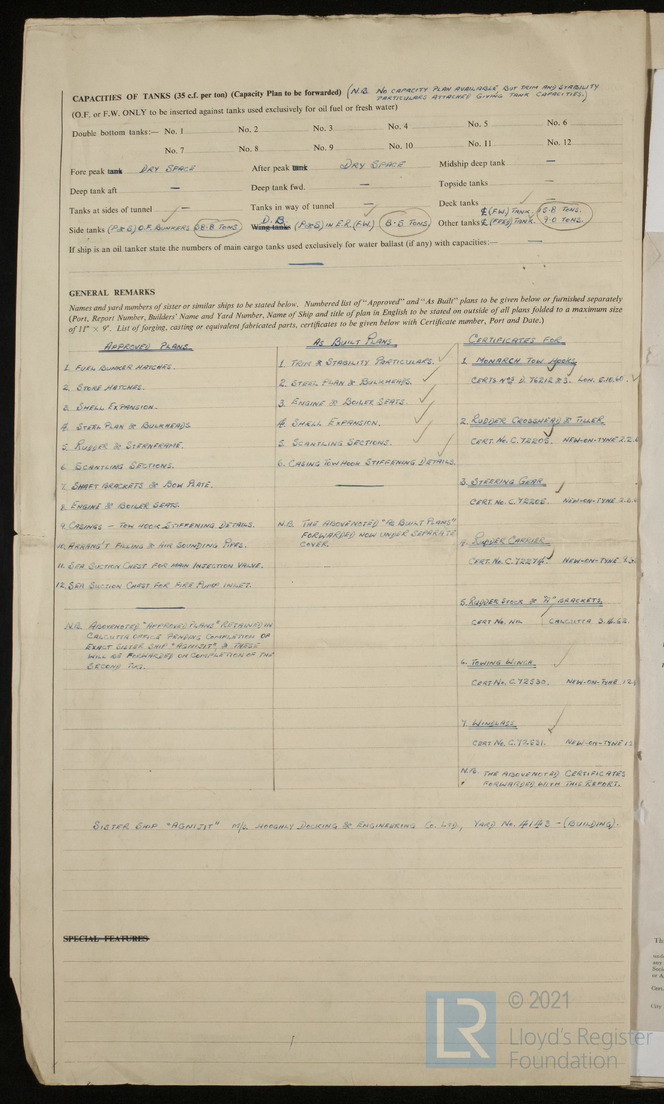 CAPACITIES OF TANKS (35 c.f. per ton) (Capacity Plan to be forwarded) (N.B. NO CAPACITY PLAN AVAILABLE BUT TRIM AND STABILITY
PARTICULARS ATTACHED GIVING TANK CAPACITIES.)
(O.F. or F.W. ONLY to be inserted against tanks used exclusively for oil fuel or fresh water)
Double bottom tanks:— No. 1 No. 2 No. 3 No. 4 No. 5 No. 6
No. 7 No. 8 No. 9 No. 10 No. 11 No. 12
Fore peak tank DRY SPACE After peak tank DRY SPACE Midship deep tank —
Deep tank aft — Deep tank fwd. — Topside tanks —
Tanks at sides of tunnel — Tanks in way of tunnel — Deck tanks —
Side tanks (P&S) O.F. BUNKERS 58.8 TONS. D.B. Wing tanks (P&S) IN E.R. (F.W.) 8.5 TONS. Other tanks (F.W.) TANK. TONS.
(FEED) TANK. 9.0 TONS.
If ship is an oil tanker state the numbers of main cargo tanks used exclusively for water ballast (if any) with capacities:— —
GENERAL REMARKS
Names and yard numbers of sister or similar ships to be stated below. Numbered list of "Approved" and "As Built" plans to be given below or furnished separately
(Port, Report Number, Builders' Name and Yard Number, Name of Ship and title of plan in English to be stated on outside of all plans folded to a maximum size
of 11" × 9". List of forging, casting or equivalent fabricated parts, certificates to be given below with Certificate number, Port and Date.)
APPROVED PLANS.
1. FUEL BUNKER HATCHES.
2. STORE HATCHES.
3. SHELL EXPANSION.
4. STEEL PLAN & BULKHEADS
5. RUDDER & STERNFRAME.
6. SCANTLING SECTIONS.
7. SHAFT BRACKETS & BOW PLATE.
8. ENGINE & BOILER SEATS.
9. CASINGS – TOW HOOK STIFFENING DETAILS.
10. ARRANG'T FILLING & AIR SOUNDING PIPES.
11. SEA SUCTION CHEST FOR MAIN INJECTION VALVE.
12. SEA SUCTION CHEST FOR FIRE PUMP INLET.
N.B. ABOVENOTED "APPROVED PLANS" RETAINED IN
CALCUTTA OFFICE PENDING COMPLETION OF
EXACT SISTER SHIP "AGNIJIT", & THESE
WILL BE FORWARDED ON COMPLETION OF THE
SECOND TUG.
AS BUILT PLANS.
1. TRIM & STABILITY PARTICULARS.
2. STEEL PLAN & BULKHEADS.
3. ENGINE & BOILER SEATS.
4. SHELL EXPANSION.
5. SCANTLING SECTIONS.
6. CASING TOW HOOK STIFFENING DETAILS.
N.B. THE ABOVENOTED "AS BUILT PLANS"
FORWARDED NOW UNDER SEPARATE
COVER.
CERTIFICATES FOR
1. MONARCH TOW HOOKS
CERTS. Nos D. 76212 LON. 6.10.60
2. RUDDER CROSSHEAD & TILLER.
CERT. No. C. 72205. NEW-ON-TYNE
3. STEERING GEAR.
CERT. No. C. 72205. NEW-ON-TYNE
4. RUDDER CARRIER.
CERT. No. NEW-ON-TYNE
5. RUDDER STOCK & "A" BRACKETS.
CERT No. NIL CALCUTTA 3.4.62.
6. TOWING WINCH
CERT No. C. 72530. NEW-ON-TYNE
7. WINDLASS.
CERT No. C. 72531. NEW-ON-TYNE
N.B. THE ABOVENOTED CERTIFICATES
FORWARDED WITH THIS REPORT.
SISTER SHIP "AGNIJIT" M/S. HOOGHLY DOCKING & ENGINEERING CO. LTD., YARD NO. – (BUILDING).
SPECIAL FEATURES
LR © 2021
Lloyd's Register
Foundation